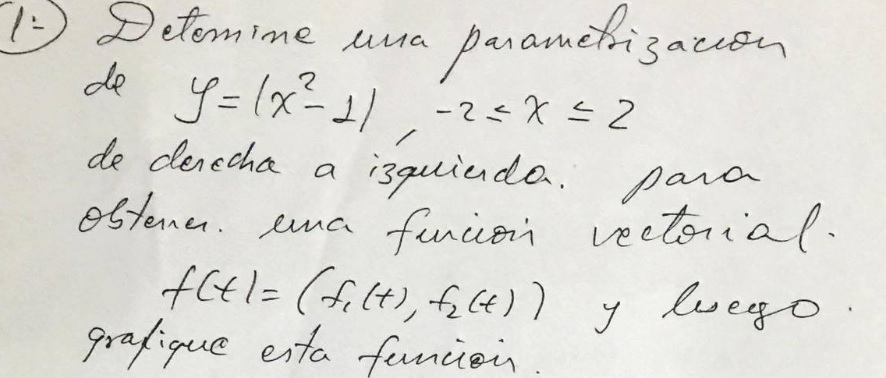 1-) Determine una parametrización
de y = |x² - 1|, -2 ≤ x ≤ 2
de derecha a izquierda. para
obtener. una función vectorial.
f(t) = (f₁(t), f₂(t)) y luego.
grafique esta función.